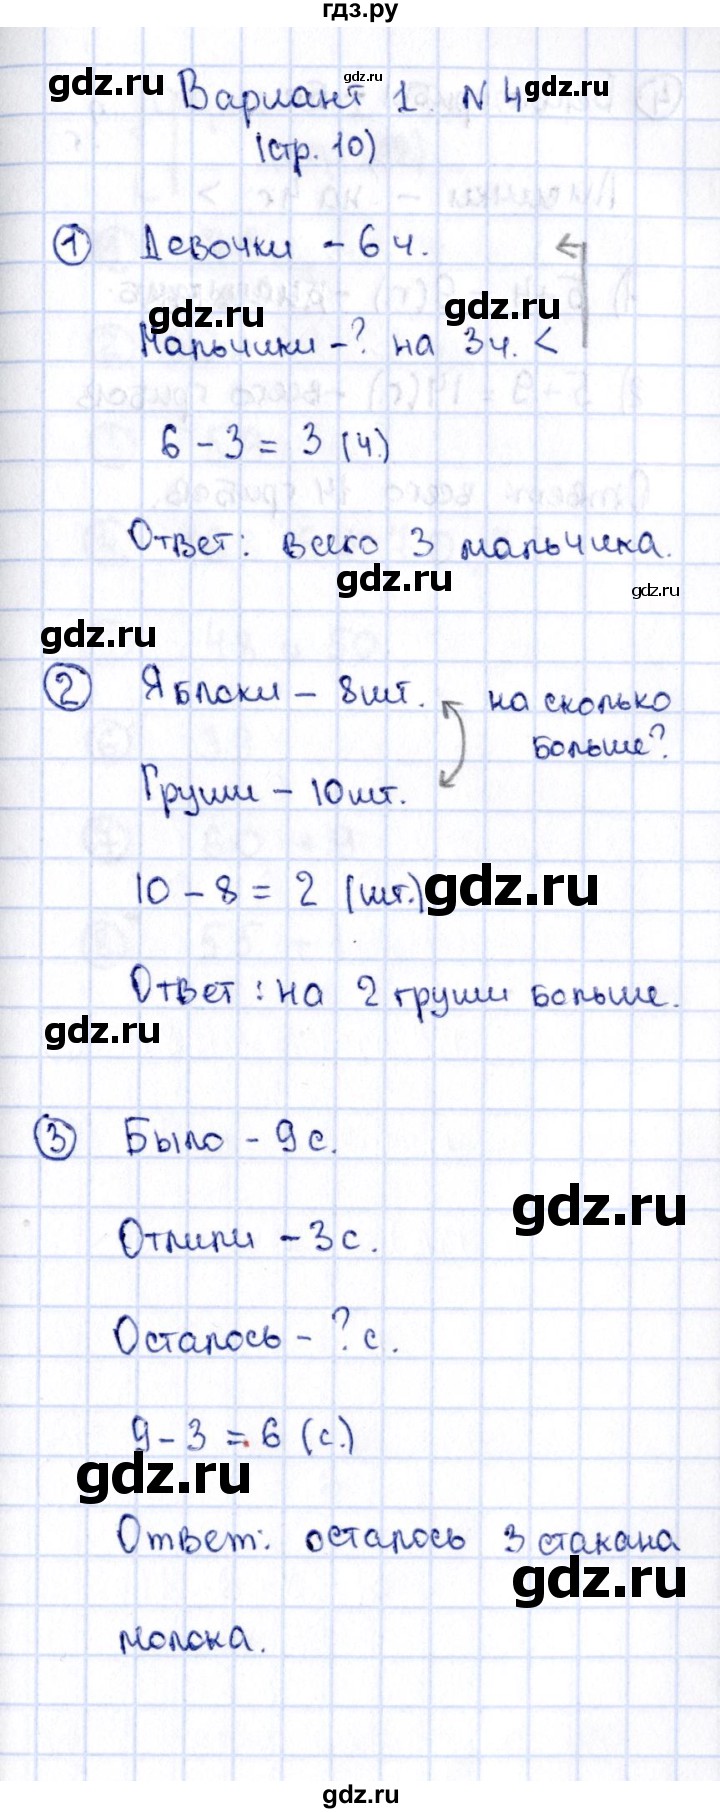 гдз.ру
gdz.ru
gdz.ru
Вариант 1. N 4
gdz.ru
(стр. 10)
1 Девочки - 6 ч.
gdz.ru
gdz.ru
Мальчики - ? на 3 ч. <
6 - 3 = 3 (ч.)
Ответ: всего 3 мальчика.
gdz.ru
gdz.ru
gdz.ru
2 Яблоки - 8 шт. на сколько
больше?
Груши - 10 шт.
10 - 8 = 2 (шт.)
gdz.ru
Ответ: на 2 груши больше.
gdz.ru
3 Было - 9 с.
gdz.ru
Отпили - 3 с.
Осталось - ? с.
9 - 3 = 6 (с.)
gdz.ru
Ответ: осталось 3 стакана
gdz.ru
молока.
gdz.ru